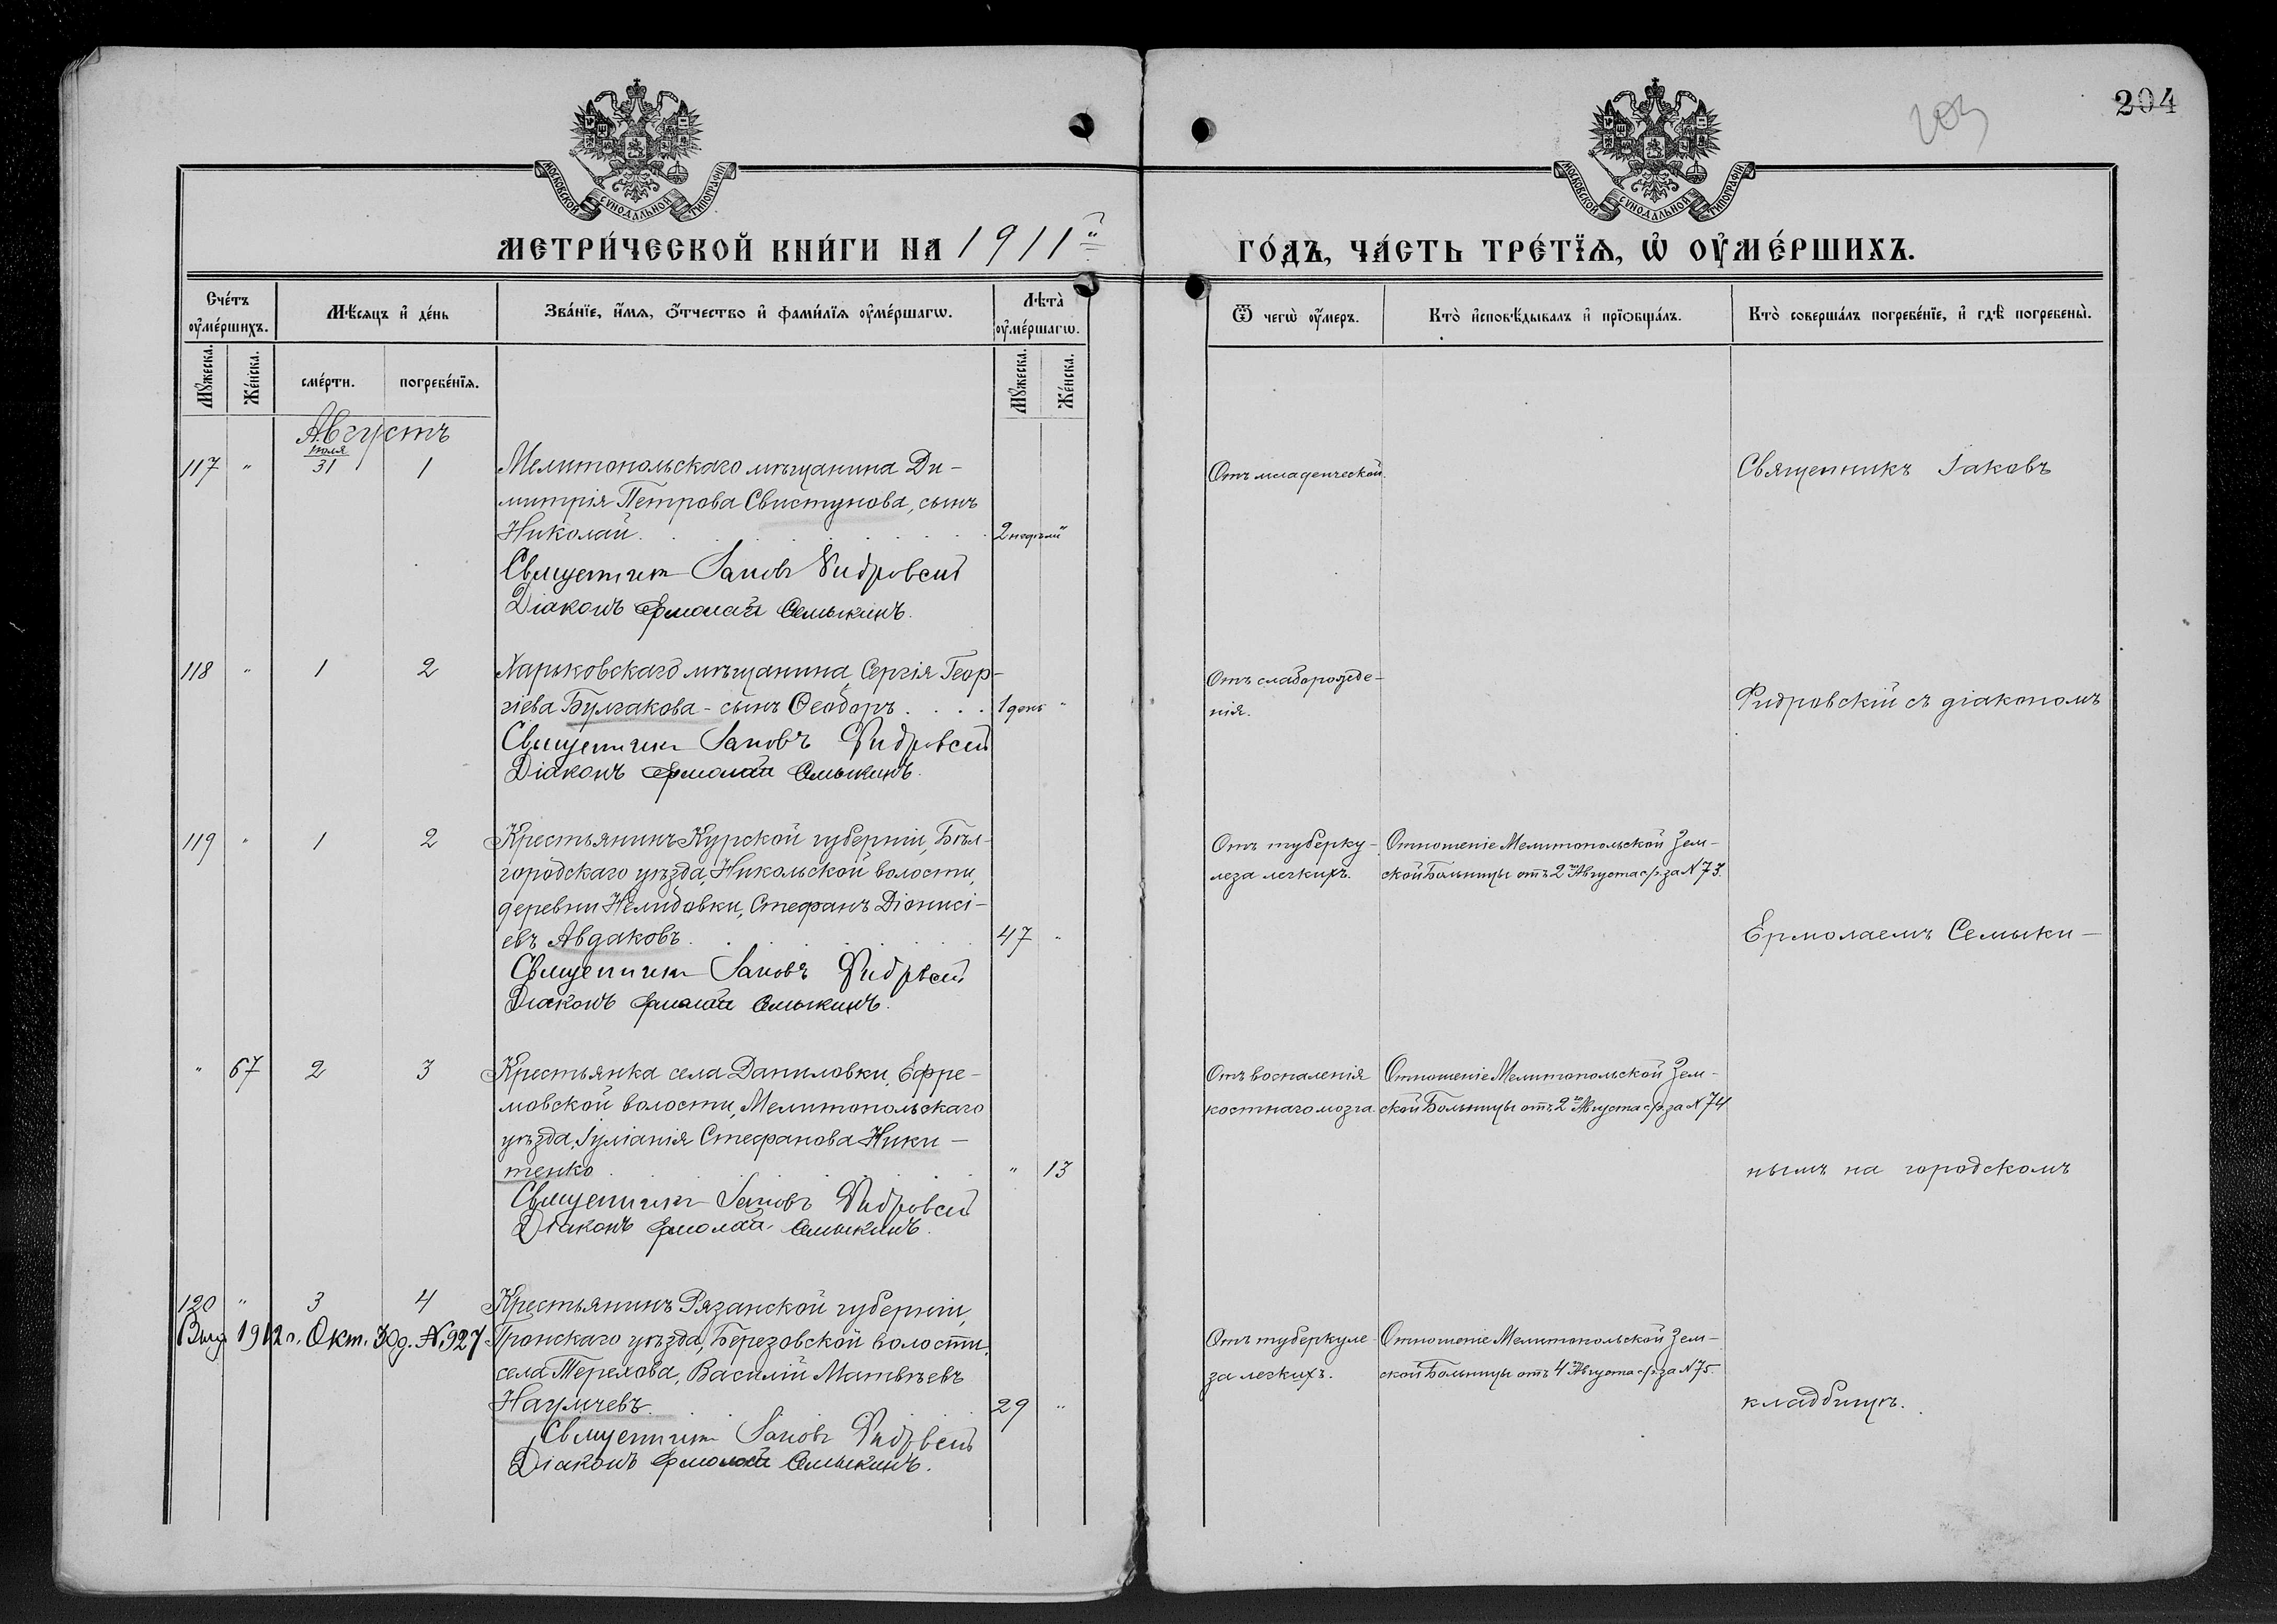 204
203
МОСКОВСКОЙ СѴНОДАЛЬНОЙ ТИПОГРАФІИ
МОСКОВСКОЙ СѴНОДАЛЬНОЙ ТИПОГРАФІИ
МЕТРИ́ЧЕСКОЙ КНИ́ГИ НА 1911й
ГО́ДЪ, ЧА́СТЬ ТРЕ́ТЇѦ, Ѡ҆ ОУ҆МЕ́РШИХЪ.
Сче́тъ оу҆ме́ршихъ.
Мѣ́сяцъ и҆ де́нь
Зва́нїе, и҆́мѧ, ѻ҆́тчество и҆ фами́лїѧ оу҆ме́ршагѡ.
Лѣта̀ оу҆ме́ршагѡ.
Ѿ чегѡ̀ оу҆́меръ.
Кто̀ и҆сповѣ́дывалъ и҆ прїѻбща́лъ.
Кто̀ соверша́лъ погребе́нїе, и҆ гдѣ̀ погребены̀.
Мꙋ́жеска.
Же́нска.
сме́рти.
погребе́нїѧ.
Мꙋ́жеска.
Же́нска.
Августъ
117 " іюля 31 1
Мелитопольскаго мѣщанина Ди-
митрія Петрова Свистунова, сынъ
Николай. 2 недѣли
Священникъ Іаковъ Фидровскій
Діаконъ Ермолай Семыкинъ.
Отъ младенческой.
Священникъ Іаковъ
118 " 1 2
Харьковскаго мѣщанина, Сергія Геор-
гіева Булгакова - сынъ Ѳеодоръ . . . . 1 день "
Священникъ Іаковъ Фидровскій
Діаконъ Ермолай Семыкинъ.
Отъ слаборожде-
нія.
Фидровскій съ діакономъ
119 " 1 2
Крестьянинъ Курской губерніи, Бѣл-
городскаго уѣзда, Никольской волости,
деревни Нелидовки, Стефанъ Діонисі-
евъ Авдаковъ. 47 "
Священникъ Іаковъ Фидровскій
Діаконъ Ермолай Семыкинъ.
Отъ туберку-
леза легкихъ.
Отношеніе Мелитопольской Зем-
ской Больницы отъ 2го Августа с/г. за № 73.
Ермолаемъ Семыки-
" 67 2 3
Крестьянка села Даниловки, Ефре-
мовской волости, Мелитопольскаго
уѣзда, Іуліанія Стефанова Ники-
тенко " 13
Священникъ Іаковъ Фидровскій
Діаконъ Ермолай Семыкинъ.
Отъ воспаленія
костнаго мозга.
Отношеніе Мелитопольской Зем-
ской Больницы отъ 2го Августа с/г. за № 74
нымъ на городскомъ
120 " 3 4
Выд 1912 г. Окт. 30 д. № 927
Крестьянинъ Рязанской губерніи,
Пронскаго уѣзда, Березовской волости,
села Терехова, Василій Матвѣевъ
Наумчевъ. 29 "
Священникъ Іаковъ Фидровскій
Діаконъ Ермолай Семыкинъ.
Отъ туберкуле-
за легкихъ.
Отношеніе Мелитопольской Зем-
ской Больницы отъ 4го Августа с/г. за № 75.
кладбищѣ.